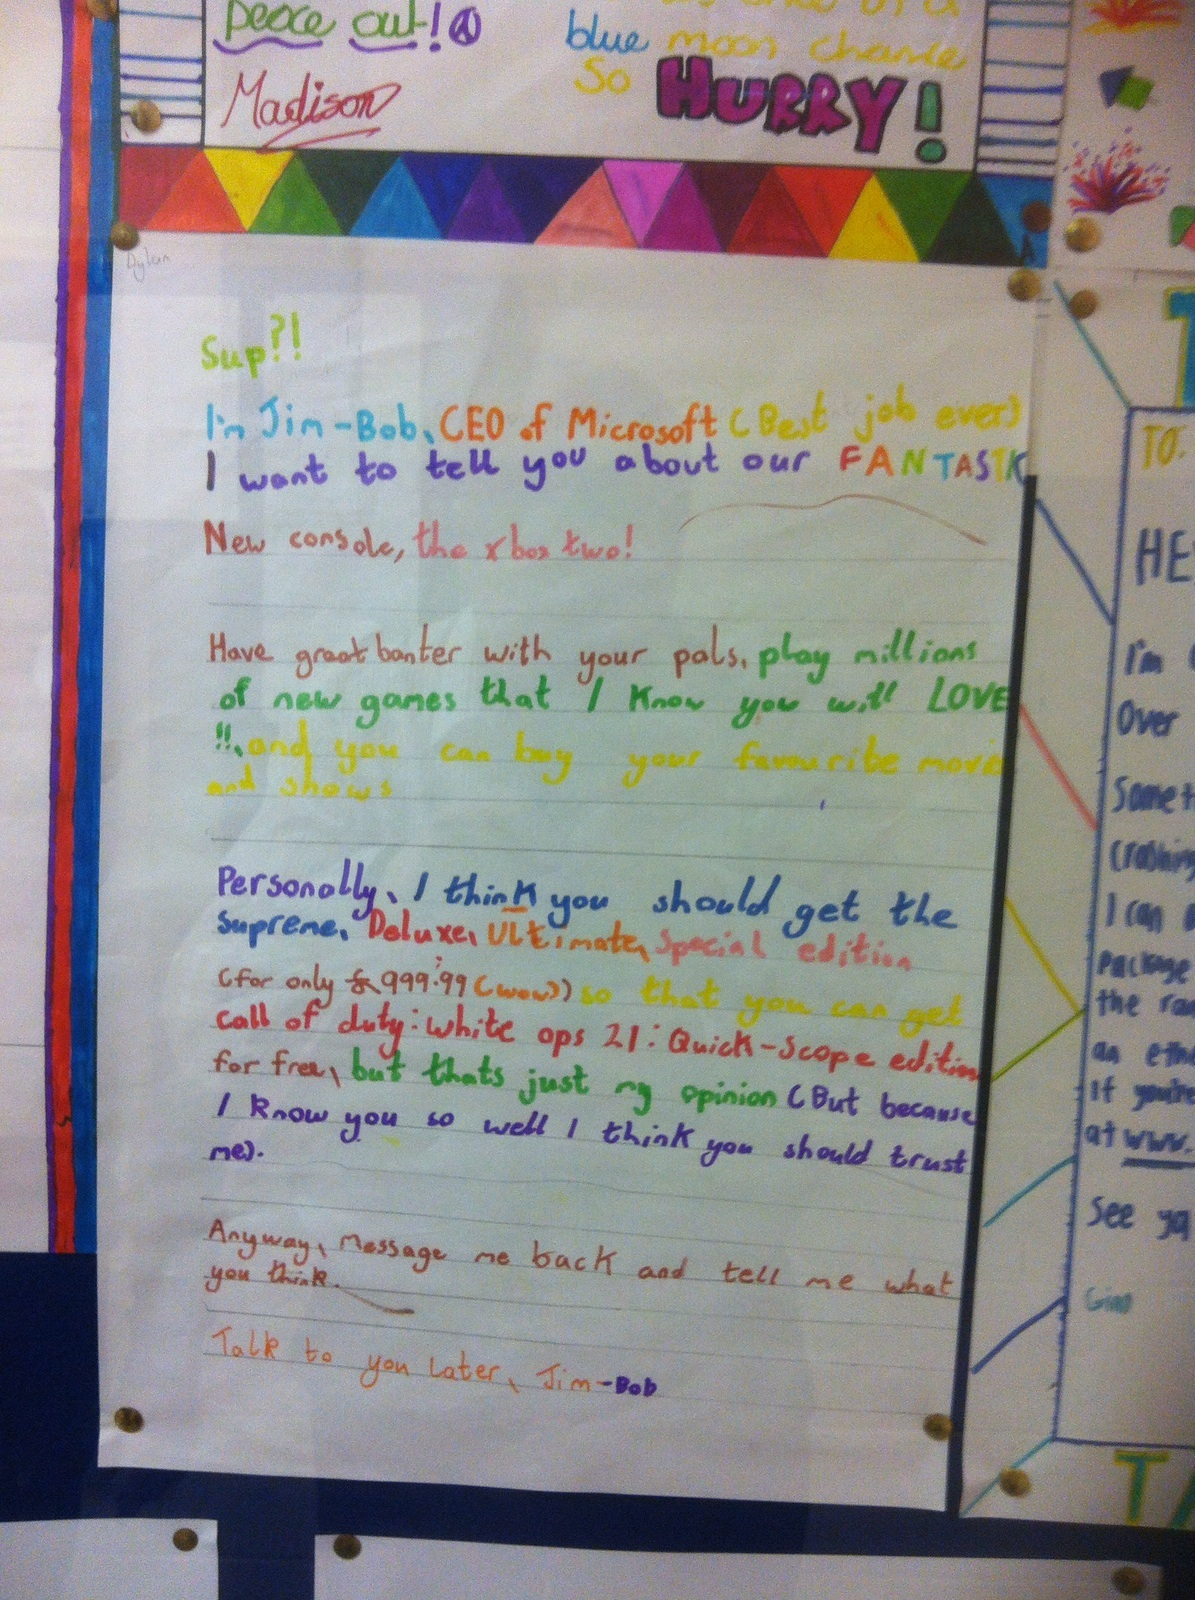 peace out!
Madison
blue moon chance
So HURRY!
Dylan
Sup?!
I'm Jim-Bob, CEO of Microsoft (Best job ever)
I want to tell you about our FANTASTIC
New console, the xbox two!
Have great banter with your pals, play millions
of new games that I know you will LOVE
!!, and you can buy your favourite movie
and shows
Personally, I think you should get the
supreme, Deluxe, Ultimate, Special edition
(for only £999.99 (wow)) so that you can get
call of duty: white ops 21: Quick-Scope edition
for free, but thats just my opinion (But because
I know you so well I think you should trust
me).
Anyway, message me back and tell me what
you think.
Talk to you later, Jim-Bob
TO:
HE
I'm
Over
Somet
crashing
I can
package
the
an
If you're
at www.
See ya
T